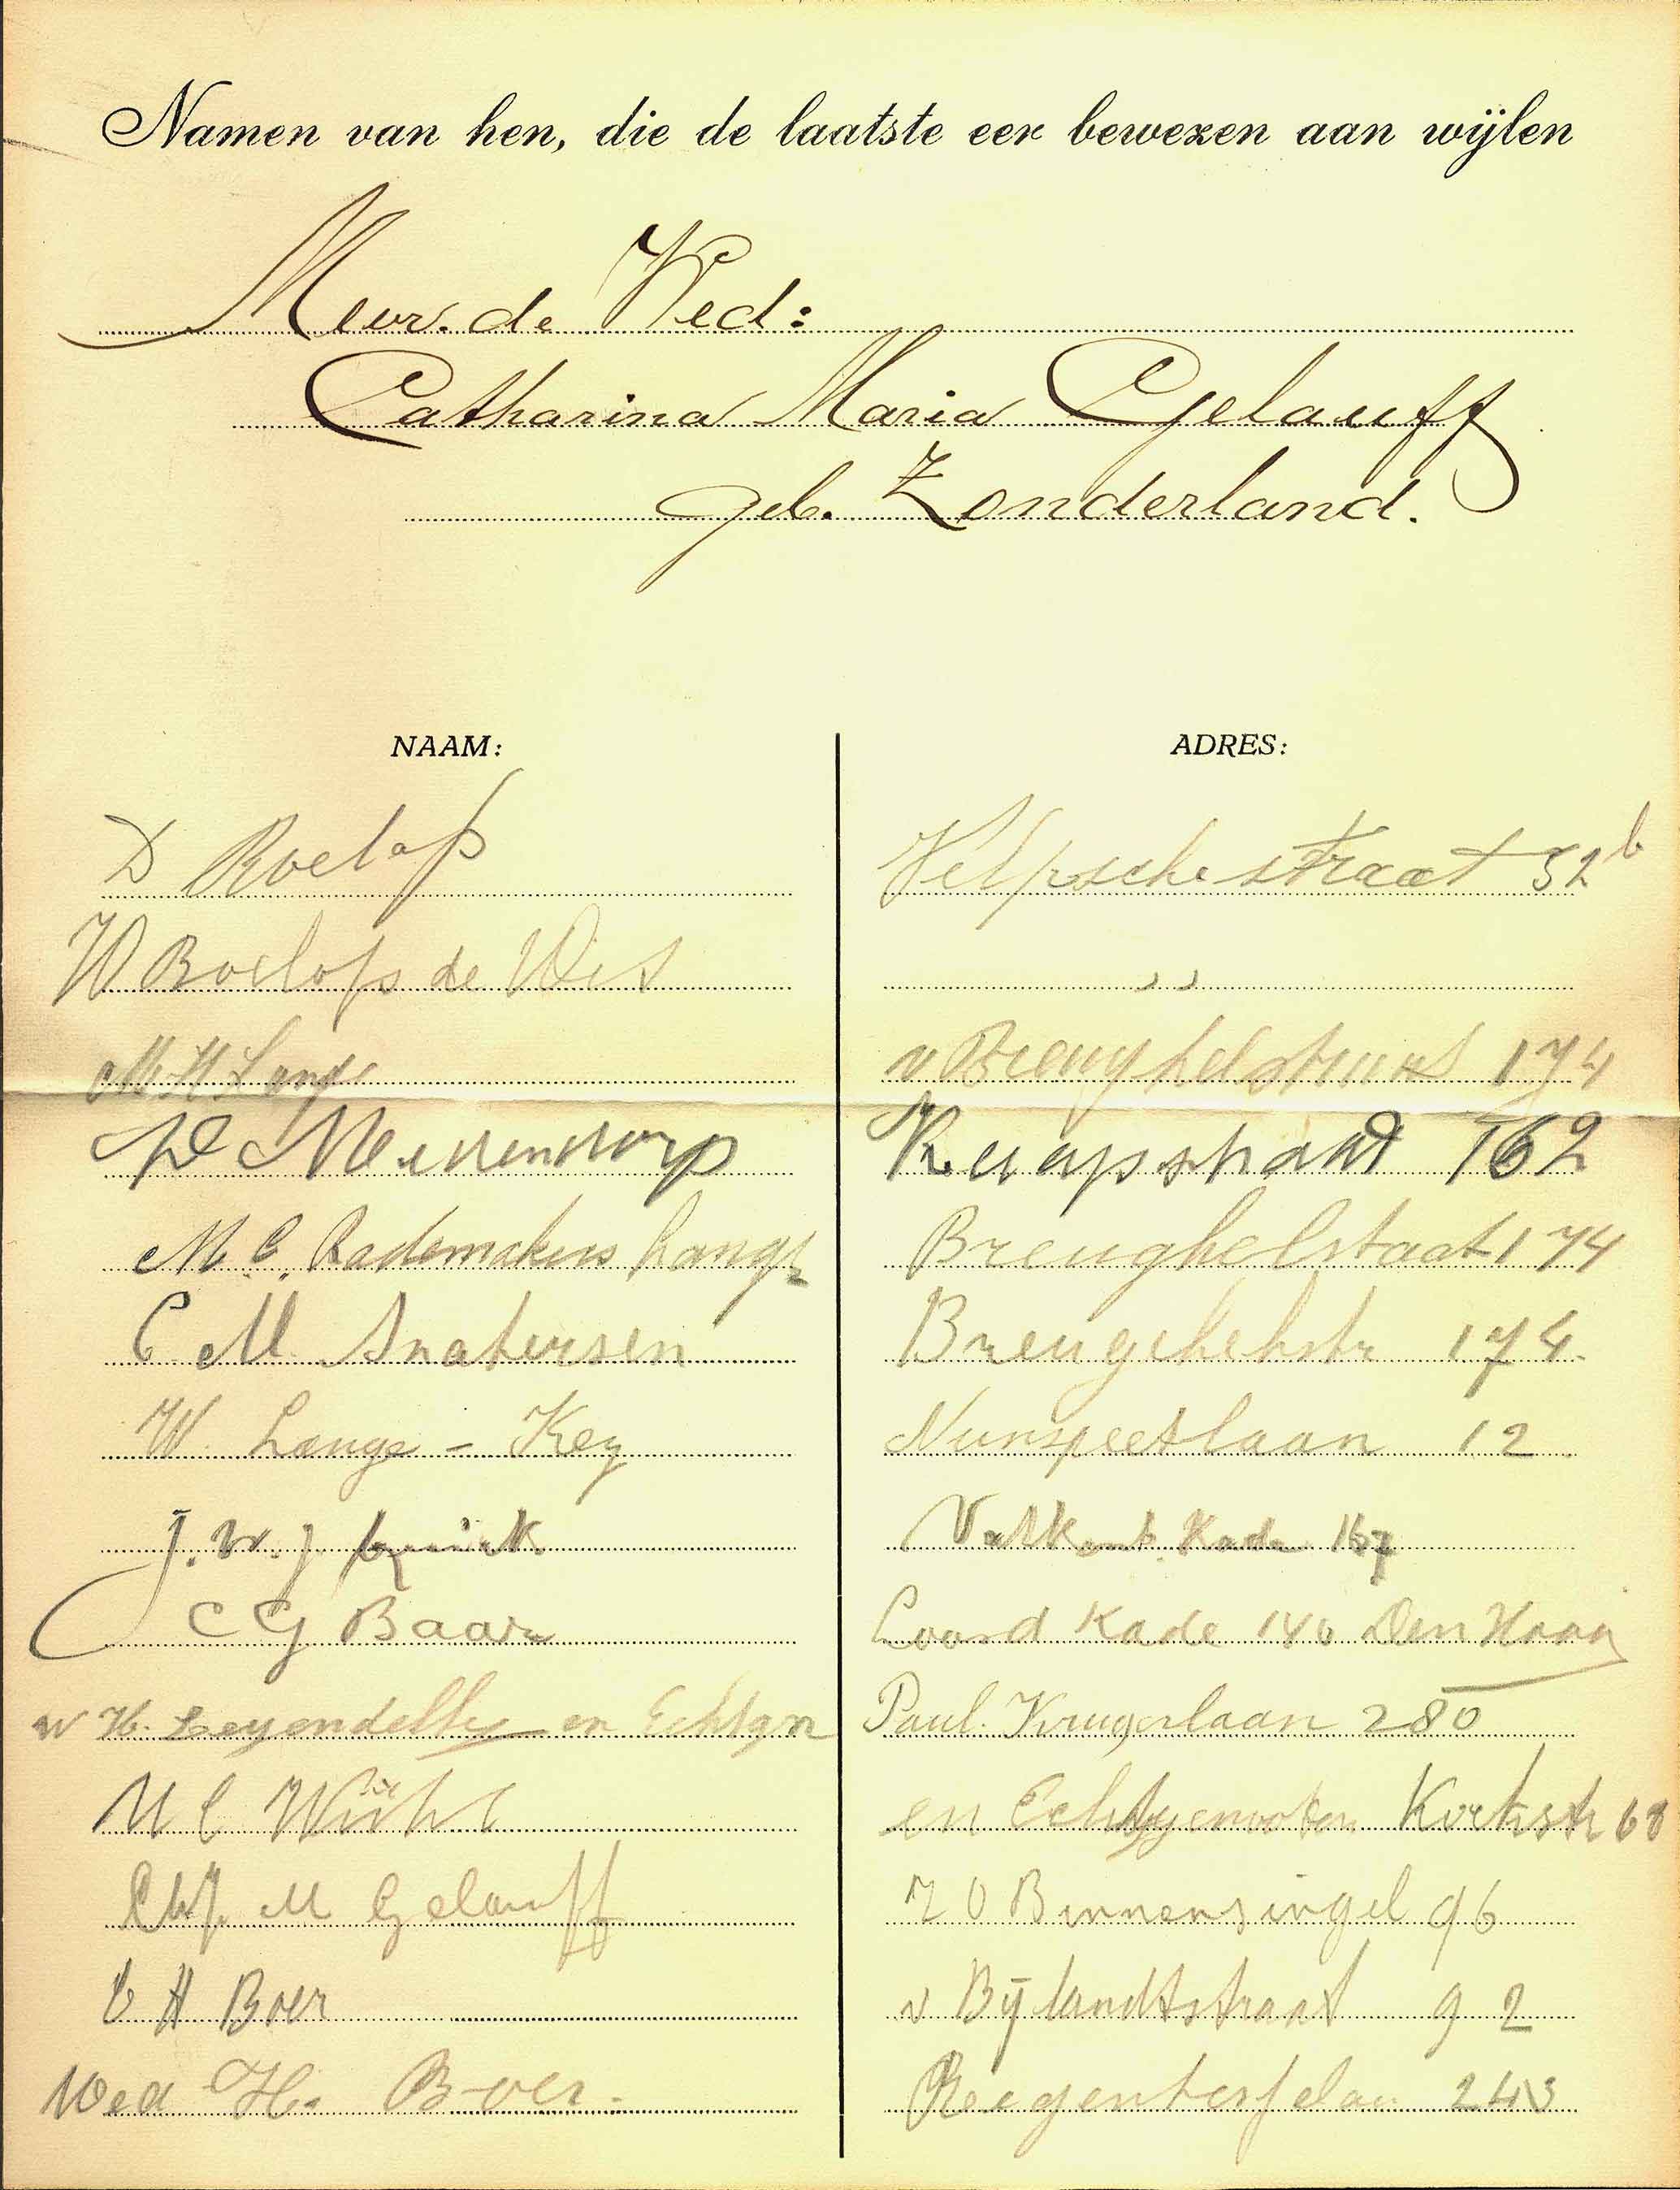 Namen van hen, die de laatste eer bewezen aan wijlen
Mevr. de Wed:
Catharina Maria Gelauff
geb. Zonderland.
NAAM: ADRES:
D Roelofs Velpschestraat 32b
W Roelofs de Wit ,,
M H Lange v Breughelstraat 174
Kuipstraat 162
M. C. Rademakers Lange Breughelstaat 174
C M Snatersen 174.
W. Lange - Key Nunspeetlaan 12
J. W. J. Valkenb. Kade 167
C G Baar Loosd Kade 140 Den Haag
W H. en Echtgn Paul. Krugerlaan 280
M C en Echtgenooten 68
M Gelauff Z O Binnensingel 96
C H Boer v Bijlandtstraat 92
Wed H. Boer. 243